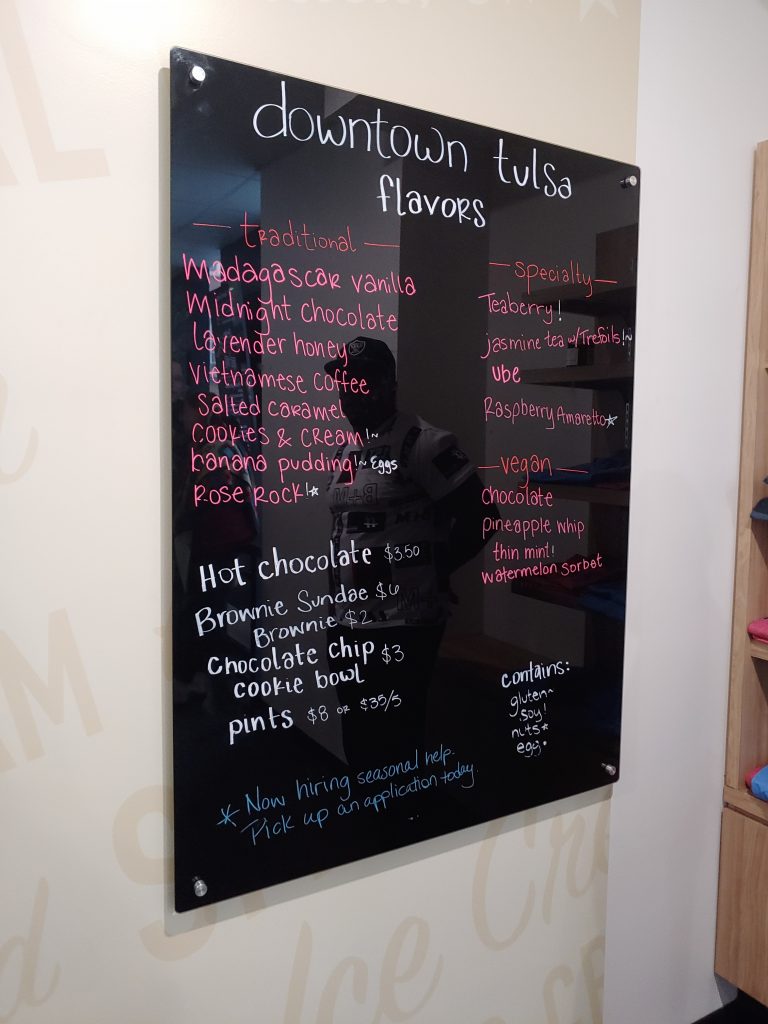 downtown tulsa
flavors
— traditional —
Madagascar vanilla
Midnight chocolate
lavender honey
vietnamese coffee
Salted caramel
cookies & cream!~
banana pudding!~ Eggs
Rose Rock!☆
— specialty —
Teaberry!
jasmine tea w/Trefoils!~
ube
Raspberry Amaretto☆
— vegan —
chocolate
pineapple whip
thin mint!
watermelon sorbet
Hot chocolate $3.50
Brownie Sundae $6
Brownie $2
Chocolate chip $3
cookie bowl
pints $8 or $35/5
contains:
gluten~
soy!
nuts*
egg•
* Now hiring seasonal help.
Pick up an application today.
Ice Cre